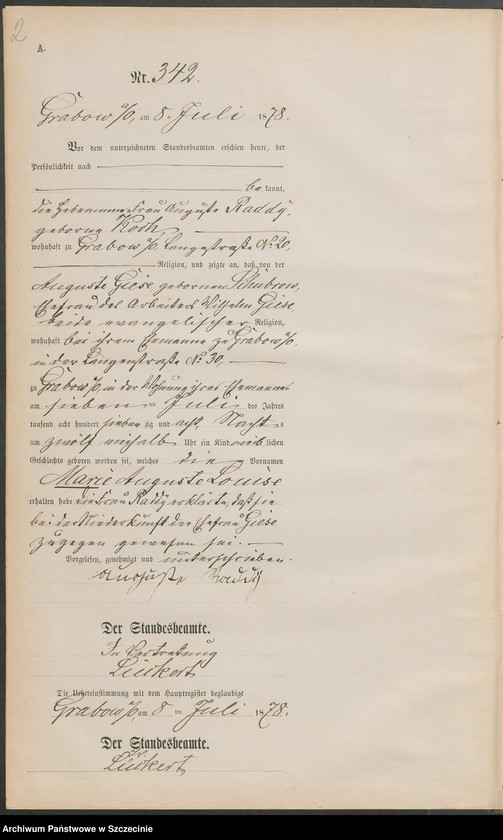 2
A.
Nr. 342.
Grabow a/O, am 8ten Juli 1878.
Vor dem unterzeichneten Standesbeamten erschien heute, der
Persönlichkeit nach
be kannt,
die Hebeamme Frau Auguste Raddy,
geborne Koch,
wohnhaft zu Grabow a/O, Langestraße No 20,
Religion, und zeigte an, daß von der
Auguste Giese, gebornen Schubrow,
Ehefrau des Arbeiters Wilhelm Giese
beide evangelischer Religion,
wohnhaft bei ihrem Ehemanne zu Grabow a/O,
in der Langenstraße No 30,
zu Grabow a/O, in der Wohnung ihres Ehemannes
am sieben ten Juli des Jahres
tausend acht hundert sieben zig und acht, Nachts
um zwölf einhalb Uhr ein Kind weib lichen
Geschlechts geboren worden sei, welches die Vornamen
Marie Auguste Louise
erhalten habe die Frau Raddy erklärte, daß sie
bei der Niederkunft der Ehefrau Giese
zugegen gewesen sei.
Vorgelesen, genehmigt und unterschrieben.
Auguste Raddy
Der Standesbeamte.
In Vertretung
Lückert
Die Uebereinstimmung mit dem Hauptregister beglaubigt
Grabow a/O, am 8ten Juli 1878.
Der Standesbeamte.
Lückert
Archiwum Państwowe w Szczecinie